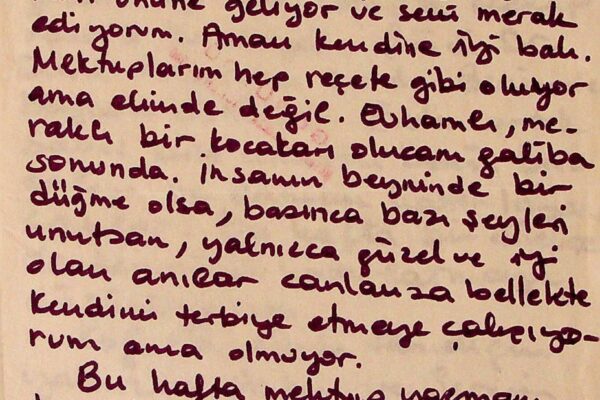 önüne geliyor ve seni merak
ediyorum. Aman kendine iyi bak.
Mektuplarım hep reçete gibi oluyor
ama elimde değil. Evhamlı, me-
raklı bir kocakarı olucam galiba
sonunda. İnsanın beyninde bir
düğme olsa, basınca bazı şeyleri
unutsan, yalnızca güzel ve iyi
olan anılar canlansa bellekte
Kendimi terbiye etmeye çalışıyo-
rum ama olmuyor.
Bu hafta mektup